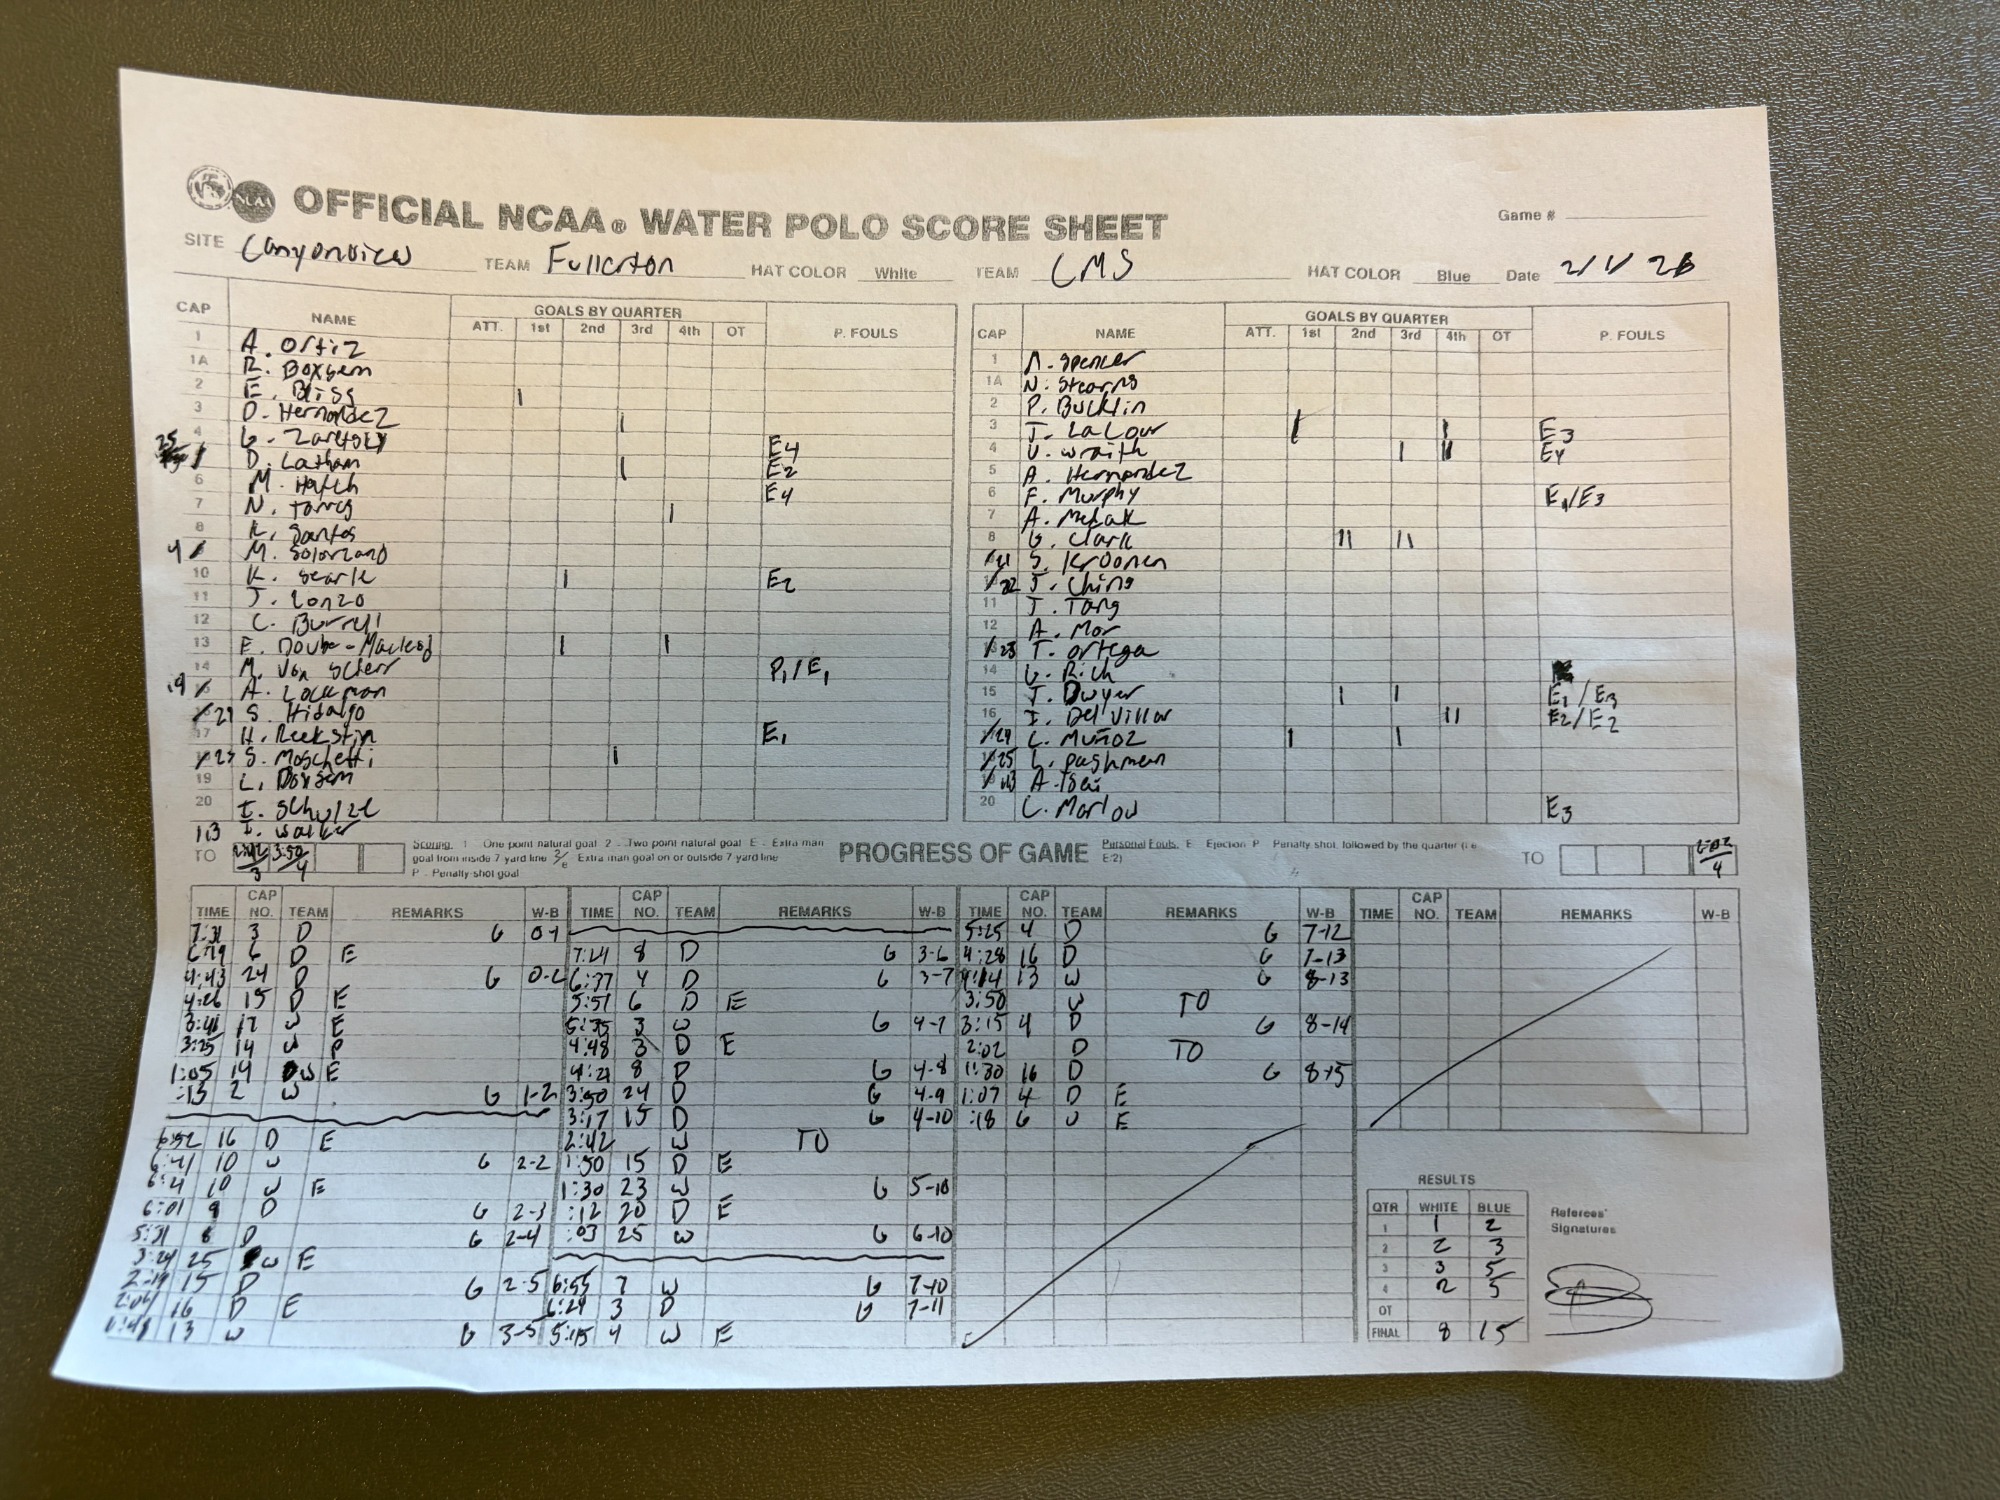 OFFICIAL NCAA® WATER POLO SCORE SHEET
Game #
SITE Canyonview TEAM Fullerton HAT COLOR White TEAM CMS HAT COLOR Blue Date 2/1/26
CAP NAME GOALS BY QUARTER P. FOULS
ATT. 1st 2nd 3rd 4th OT
1 A. Ortiz
1A R. Boxsem
2 E. Bliss I
3 D. Hernandez I
4 G. E4
25 D. Latham I E2
6 M. Hatch E4
7 N. Torres I
8 K. Santos
4 M. Solorzano
10 K. Searle I E2
11 J. Lonzo
12 C. Burrell
13 E. Doube-Macleod I I
14 M. Von Scherr P1/E1
19 A. Lockman
21 S. Hidalgo
17 H. E1
23 S. Moschetti I
19 L. Boxsem
20 I. Schulze
113 I. Walker
CAP NAME GOALS BY QUARTER P. FOULS
ATT. 1st 2nd 3rd 4th OT
1 Spencer
1A N. Stearns
2 P. Bucklin
3 J. LaCour I I E3
4 U. Wraith I II E4
5 A. Hernandez
6 F. Murphy E1/E3
7 A.
8 G. Clark II II
21 S. Kroonen
22 J. Ching
11 J. Tang
12 A. Mor
23 T. Ortega
14 G. Rich
15 J. Dwyer I I E1/E3
16 I. Del Villar II E2/E2
24 C. Muñoz I I
25 L. Pashman
A. Tsai
20 C. Marlow E3
TO 2:42/3 3:50/4
Scoring. 1 - One point natural goal 2 - Two point natural goal E - Extra man
goal from inside 7 yard line 2/e Extra man goal on or outside 7 yard line
P - Penalty-shot goal
PROGRESS OF GAME
Personal Fouls. E Ejection P Penalty shot, followed by the quarter (i.e.
E/2)
TO 2:02/4
TIME CAP NO. TEAM REMARKS W-B
7:31 3 D G 0-1
6:19 6 D E
4:43 24 D G 0-2
4:26 15 D E
3:41 17 W E
3:25 14 W P
1:05 14 W E
:13 2 W G 1-2
6:52 16 D E
6:41 10 W G 2-2
6:21 10 W E
6:01 8 D G 2-3
5:31 8 D G 2-4
3:24 25 W E
2:19 15 D G 2-5
2:04 16 D E
13 W G 3-5
TIME CAP NO. TEAM REMARKS W-B
7:24 8 D G 3-6
6:37 4 D G 3-7
5:51 6 D E
5:35 3 W G 4-7
4:48 3 D E
4:21 8 D G 4-8
3:50 24 D G 4-9
3:17 15 D G 4-10
2:42 W TO
1:50 15 D E
1:30 23 W G 5-10
:12 20 D E
:03 25 W G 6-10
6:55 7 W G 7-10
6:29 3 D G 7-11
5:45 4 W E
TIME CAP NO. TEAM REMARKS W-B
5:25 4 D G 7-12
4:28 16 D G 7-13
4:14 13 W G 8-13
3:50 W TO
3:15 4 D G 8-14
2:02 D TO
1:30 16 D G 8-15
1:07 4 D E
:18 6 W E
TIME CAP NO. TEAM REMARKS W-B
RESULTS
QTR WHITE BLUE
1 1 2
2 2 3
3 3 5
4 2 5
OT
FINAL 8 15
Referees'
Signatures